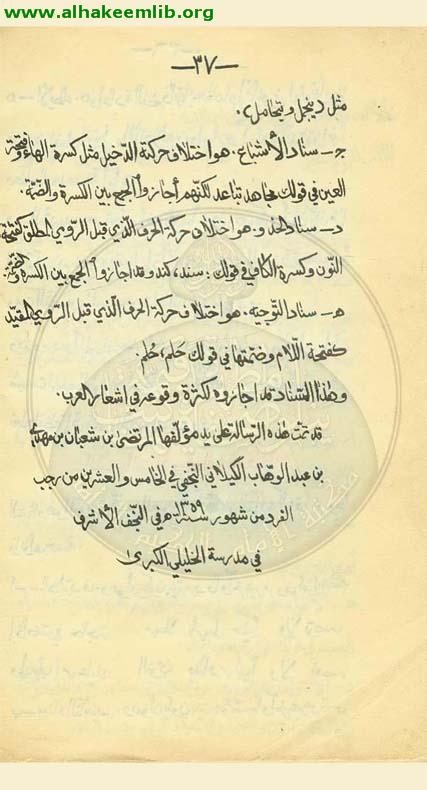 www.alhakeemlib.org
—٣٧—
مثل دينجل ويتحامل.
ج ـ سناد الأشباع. هو اختلاف حركة الدخيل مثل كسرة الهاء وفتحة
العين في قولك مجاهد تباعد لكنّهم أجازوا الجمع بين الكسرة والضمّة.
د ـ سناد الحذو. هو اختلاف حركة الحرف الّذي قبل الرّوي المطلق كفتحة
النّون وكسرة الكاف في قولك: سند، كند وقد اجازوا الجمع بين الكسرة والضمّة
ه ـ سناد التّوجيه. هو اختلاف حركة الحرف الّذي قبل الرّوي المقيّد
كفتحة اللّام وضمّتها في قولك حَلم، حُلم.
وهذا السّناد قد اجازوه لكثرة وقوعه في اشعار العرب.
قد تمّت هذه الرّسالة على يد مؤلّفها المرتضى بن شعبان بن مهدي
بن عبد الوهّاب الگيلاني النّجفي في الخامس والعشرين من رجب
الفرد من شهور سنة ١٣٥٩ه في النّجف الأشرف
في مدرسة الخليلي الكبرى